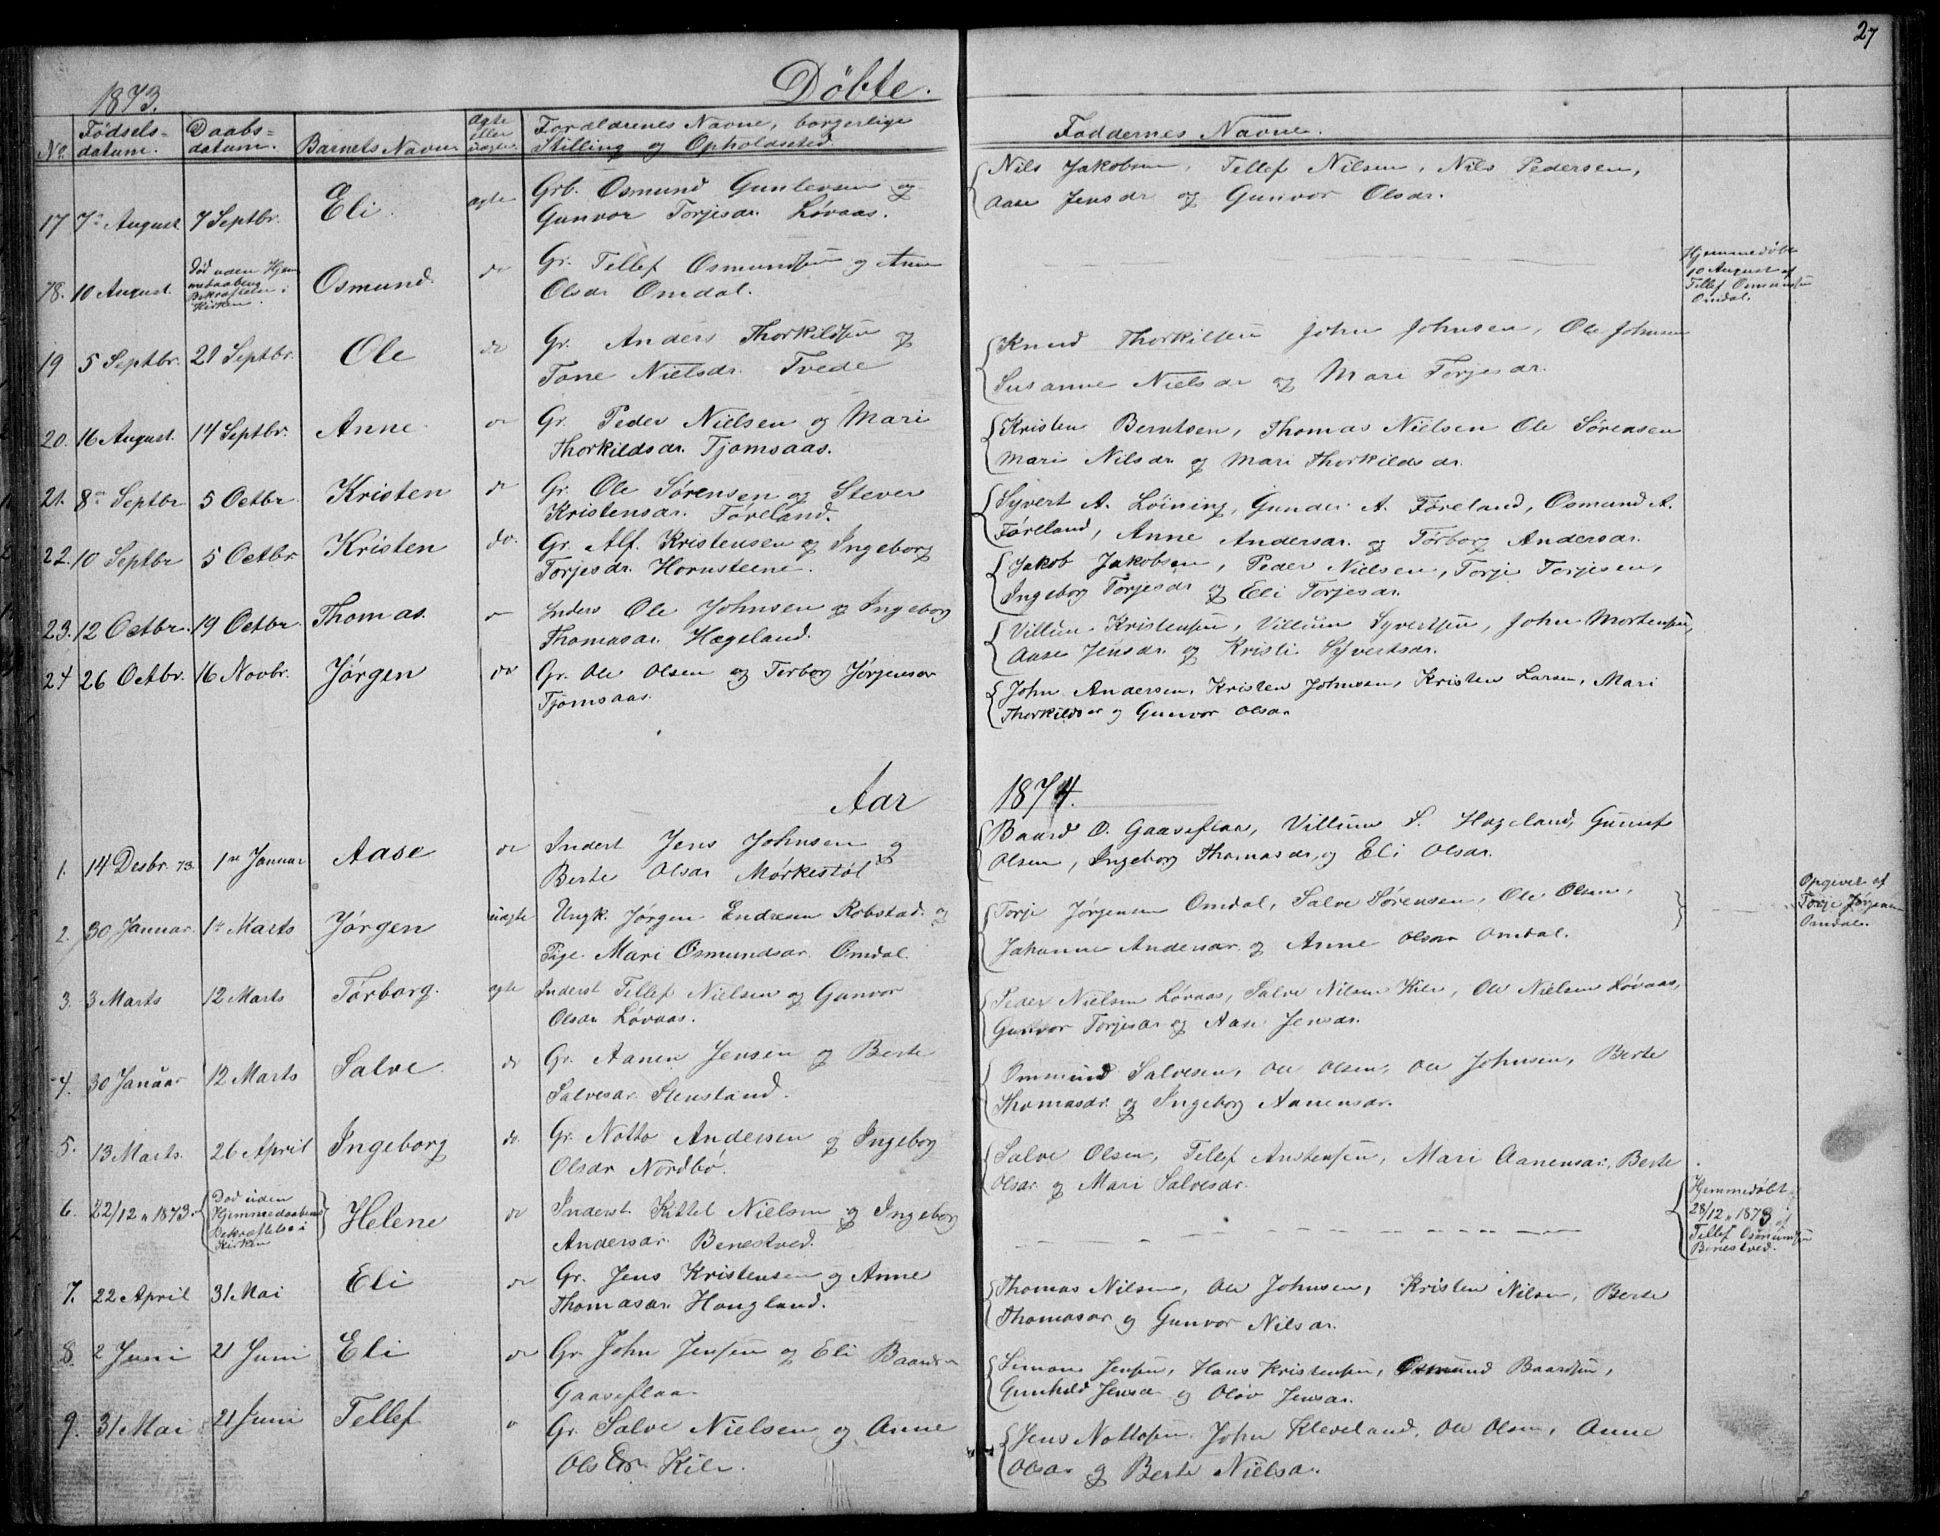 27
Döbte.
1873.
No. Födsels= datum. Daabs= datum. Barnets Navn Ægte eller uægte Forældrenes Navne, borgerlige Stilling og Opholdssted. Faddernes Navne.
17 7de August 7 Septbr. Eli. ægte Grb. Osmund Gunlevsen og Gunvor Torjesdr. Løvaas.
Nils Jakobsen, Tellef Nilsen, Nils Pedersen,
Aase Jensdr og Gunvor Olsdr.
18. 10 August. Død uden Hjemmedaabens Bekræftelse i Kirken. Osmund. do Gr. Tellef Osmundsen og Anne
Olsdr Omdal.
Hjemmedøbt
10 August af
Tellef Osmundsen
Omdal.
19 5 Septbr. 21 Septbr. Ole do Gr. Anders Thorkildsen og
Tone Nielsdr. Tvede
Knud Thorkilsen John Johnsen, Ole Johnsen
Susanne Nielsdr og Mari Torjesdr.
20. 16 August. 14 Septbr. Anne. do Gr. Peder Nielsen og Mari
Thorkildsdr. Tjomsaas.
Kristen Berntsen, Thomas Nielsen Ole Sørensen
Mari Nilsdr. og Mari Thorkildsdr.
21. 8de Septbr 5 Octbr. Kristen do Gr. Ole Sørensen og Stever
Kristensdr. Føreland.
Syvert A. Løining, Gunder A. Føreland, Osmund A.
Føreland, Anne Andersdr. og Torborg Andersdr.
22. 10 Septbr 5 Octbr Kristen do. Gr. Alf. Kristensen og Ingeborg
Torjesdr. Hornsteene.
Jakob Jakobsen, Peder Nielsen, Torje Torjesen,
Ingeborg Torjesdr og Eli Torjesdr.
23. 12 Octbr. 19 Octbr. Thomas. do Inders Ole Johnsen og Ingeborg
Thomasdr. Hægeland.
Villum Kristensen, Villum Syvertsen, John Mortensen,
Aase Jensdr. og Kristi Syvertsdr.
24 26 Octbr. 16 Novbr. Jørgen do Gr. Ole Olsen og Torborg Jørgensdr
Tjomsaas.
John Andersen, Kristen Johnsen, Kristen Larsen, Mari
Thorkildsdr og Gunvor Olsdr
Aar 1874.
1. 14 Desbr. 73. 1ste Januar Aase do Inderst Jens Johnsen og
Berte Olsdr Mørkestøl
Baard O. Gaaseflaa, Villum S. Hægeland, Gunuf
Olsen, Ingeborg Thomasdr, og Eli Olsdr.
2. 30 Januar. 1ste Marts Jørgen uægte Ungk. Jørgen Endresen Robstad. og
Pige. Mari Osmundsdr. Omdal.
Torje Jørgensen Omdal, Salve Sørensen, Ole Olsen,
Johanne Andersdr. og Anne Olsdr Omdal.
Opgivet af
Torje Jørgensen
Omdal.
3. 3 Marts 12 Marts Torborg. ægte Inderst Tellef Nielsen og Gunvor
Olsdr Løvaas.
Peder Nielsen Løvaas, Salve Nilsen Kile, Ole Nielsen Løvaas,
Gunvor Torjesdr og Aase Jensdr.
4. 30 Januar 12 Marts Salve. do Gr. Aanen Jensen og Berte
Salvesdr. Stensland.
Ommund Salvesen, Ole Olsen, Ole Johnsen, Berte
Thomasdr. og Ingeborg Aanensdr.
5. 13 Marts. 26 April Ingeborg do. Gr. Notto Andersen og Ingeborg
Olsdr Nordbø.
Salve Olsen, Tellef Anstensen, Mari Aanensdr. Berte
Olsdr. og Mari Salvesdr.
6. 22/12 1873. Død uden Hjemmedaabens Bekræftelse i Kirken Helene do Inderst Kittel Nielsen og Ingeborg
Andersdr. Benestved.
Hjemmedøbt
28/12 1873 af
Tellef Osmundsen
Benestved.
7. 22 April 31 Mai Eli do Gr. Jens Kristensen og Anne
Thomasdr. Hougland.
Thomas Nilsen, Ole Johnsen, Kristen Nilsen, Berte
Thomasdr og Gunvor Nilsdr.
8. 2 Juni 21 Juni Eli do Gr. John Jensen og Eli Baardsdr
Gaaseflaa.
Simon Jensen, Hans Kristensen, Osmund Baardsen,
Gunhild Jensdr og Olov Jensdr.
9. 31 Mai 21 Juni Tellef do Gr. Salve Nielsen og Anne
Olsdr. Kile.
Jens Nottosen John Kleveland, Ole Olsen, Anne
Olsdr og Berte Nielsdr.